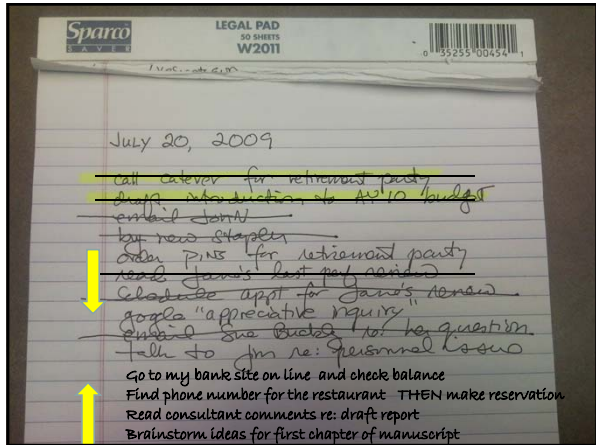 Sparco
SAVER
LEGAL PAD
50 SHEETS
W2011
0 35255 00454 1
July 20, 2009
call caterer for retirement party
draft introduction to AY10 budget
email JOHN
by new stapler
order PINS for retirement party
read Jane's last pay review
Schedule appt for Jane's review
google "appreciative inquiry"
email Sue Buckle re: her question
talk to Jim re: personnel issue
Go to my bank site on line and check balance
Find phone number for the restaurant THEN make reservation
Read consultant comments re: draft report
Brainstorm ideas for first chapter of manuscript